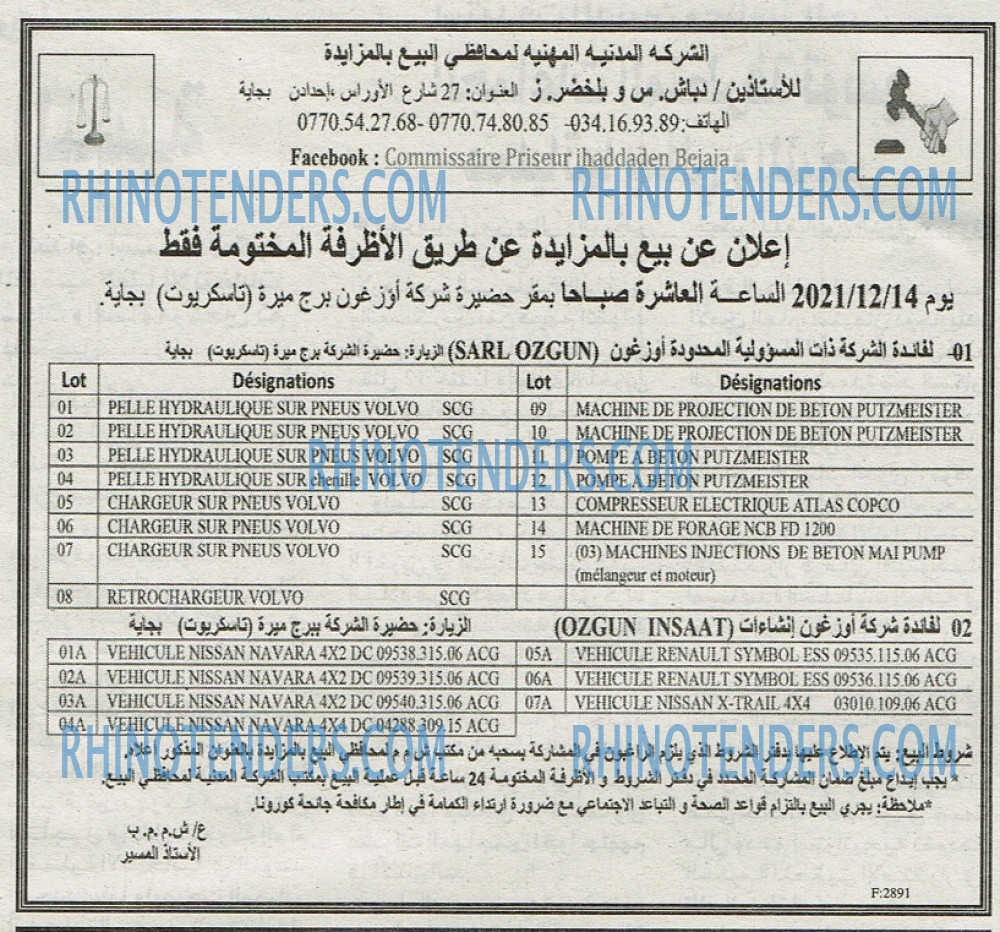 الشركة المدنية المهنية لمحافظي البيع بالمزايدة
للأستاذين / دباش. س و بلخضر. ز العنوان: 27 شارع الأوراس ،إحدادن بجاية
الهاتف:034.16.93.89- 0770.74.80.85 -0770.54.27.68
Facebook : Commissaire Priseur ihaddaden Bejaia
RHINOTENDERS.COM RHINOTENDERS.COM
إعلان عن بيع بالمزايدة عن طريق الأظرفة المختومة فقط
يوم 2021/12/14 الساعة العاشرة صباحا بمقر حضيرة شركة أوزغون برج ميرة (تاسكريوت) بجاية.
01- لفائدة الشركة ذات المسؤولية المحدودة أوزغون (SARL OZGUN) الزيارة: حضيرة الشركة برج ميرة (تاسكريوت) بجاية
Lot Désignations Lot Désignations
01 PELLE HYDRAULIQUE SUR PNEUS VOLVO SCG 09 MACHINE DE PROJECTION DE BETON PUTZMEISTER
02 PELLE HYDRAULIQUE SUR PNEUS VOLVO SCG 10 MACHINE DE PROJECTION DE BETON PUTZMEISTER
03 PELLE HYDRAULIQUE SUR PNEUS VOLVO SCG 11 POMPE A BETON PUTZMEISTER
RHINOTENDERS.COM
04 PELLE HYDRAULIQUE SUR chenille VOLVO SCG 12 POMPE A BETON PUTZMEISTER
05 CHARGEUR SUR PNEUS VOLVO SCG 13 COMPRESSEUR ELECTRIQUE ATLAS COPCO
06 CHARGEUR SUR PNEUS VOLVO SCG 14 MACHINE DE FORAGE NCB FD 1200
07 CHARGEUR SUR PNEUS VOLVO SCG 15 (03) MACHINES INJECTIONS DE BETON MAI PUMP
(mélangeur et moteur)
08 RETROCHARGEUR VOLVO SCG
02 لفائدة شركة أوزغون إنشاءات (OZGUN INSAAT) الزيارة: حضيرة الشركة ببرج ميرة (تاسكريوت) بجاية
01A VEHICULE NISSAN NAVARA 4X2 DC 09538.315.06 ACG 05A VEHICULE RENAULT SYMBOL ESS 09535.115.06 ACG
02A VEHICULE NISSAN NAVARA 4X2 DC 09539.315.06 ACG 06A VEHICULE RENAULT SYMBOL ESS 09536.115.06 ACG
03A VEHICULE NISSAN NAVARA 4X2 DC 09540.315.06 ACG 07A VEHICULE NISSAN X-TRAIL 4X4 03010.109.06 ACG
04A VEHICULE NISSAN NAVARA 4X4 DC 04288.309.15 ACG
RHINOTENDERS.COM RHINOTENDERS.COM
شروط البيع: يتم الإطلاع عليها بدفتر الشروط الذي يلزم الراغبون في المشاركة بسحبه من مكتب ش م م لمحافظي البيع بالمزايدة بالعنوان المذكور أعلاه.
* يجب إيداع مبلغ ضمان المشاركة المحدد في دفتر الشروط و الأظرفة المختومة 24 ساعة قبل عملية البيع بمكتب الشركة المدنية لمحافظي البيع.
*ملاحظة: يجري البيع بالتزام قواعد الصحة و التباعد الاجتماعي مع ضرورة ارتداء الكمامة في إطار مكافحة جائحة كورونا.
ع/ ش.م.م. ب
الأستاذ المسير
F:2891